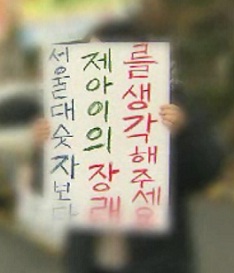 서울대 숫자보다
제 아이의 장래
를 생각해주세요